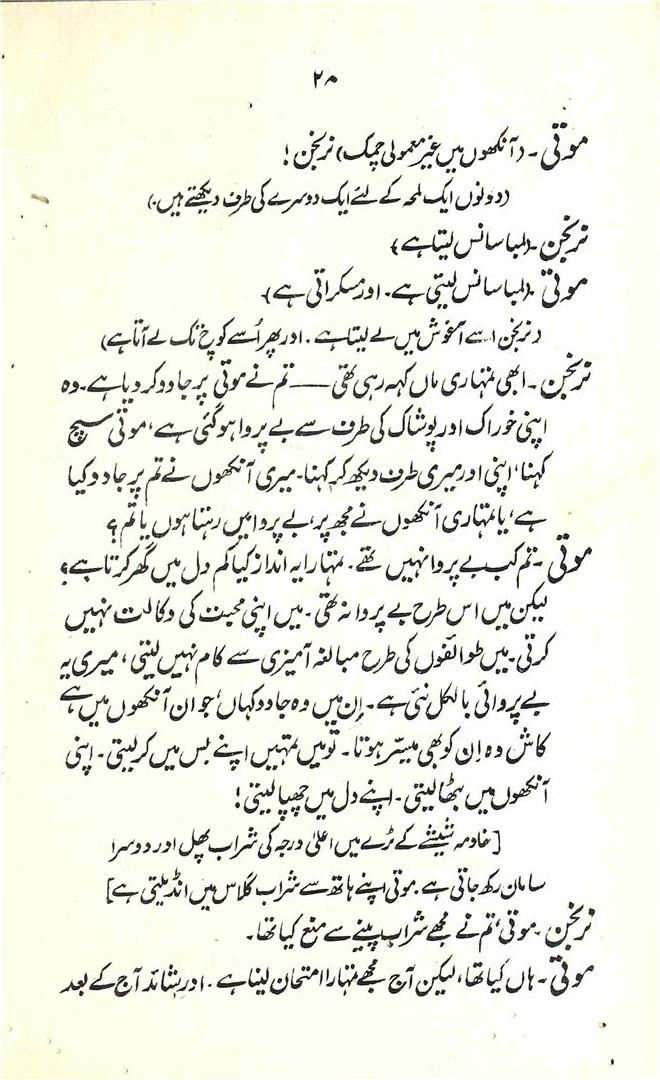 ۲۸
موتی ۔ (آنکھوں میں غیر معمولی چمک) نرنجن!
(دونوں ایک لمحہ کے لئے ایک دوسرے کی طرف دیکھتے ہیں۔)
نرنجن ۔ (لمبا سانس لیتا ہے)
موتی ۔ (لمبا سانس لیتی ہے۔ اور مسکراتی ہے)۔
(نرنجن اسے آغوش میں لے لیتا ہے۔ اور پھر اُسے کوچ تک لے آتا ہے)
نرنجن ۔ ابھی تمہاری ماں کہہ رہی تھی —— تم نے موتی پر جادو کر دیا ہے۔ وہ
اپنی خوراک اور پوشاک کی طرف سے بے پروا ہو گئی ہے، موتی سچ
کہنا، اپنی اور میری طرف دیکھ کر کہنا۔ میری آنکھوں نے تم پر جادو کیا
ہے، یا تمہاری آنکھوں نے مجھ پر، بے پروا میں رہتا ہوں یا تم؟
موتی ۔ تم کب بے پروا نہیں تھے۔ تمہارا یہ انداز کیا کم دل میں گھر کرتا ہے؟
لیکن میں اس طرح بے پروا نہ تھی۔ میں اپنی محبت کی وکالت نہیں
کرتی۔ میں طوائفوں کی طرح مبالغہ آمیزی سے کام نہیں لیتی، میری یہ
بے پروائی بالکل نئی ہے۔ اِن میں وہ جادو کہاں، جو ان آنکھوں میں ہے
کاش وہ اِن کو بھی میسّر ہوتا۔ تو میں تمہیں اپنے بس میں کر لیتی۔ اپنی
آنکھوں میں بٹھا لیتی۔ اپنے دل میں چھپا لیتی!
[خادمہ شیشے کے ٹرے میں اعلیٰ درجہ کی شراب پھل اور دوسرا
سامان رکھ جاتی ہے۔ موتی اپنے ہاتھ سے شراب گلاس میں انڈیلتی ہے]
نرنجن ۔ موتی، تم نے مجھے شراب پینے سے منع کیا تھا۔
موتی ۔ ہاں کیا تھا، لیکن آج مجھے تمہارا امتحان لینا ہے۔ اور شائد آج کے بعد